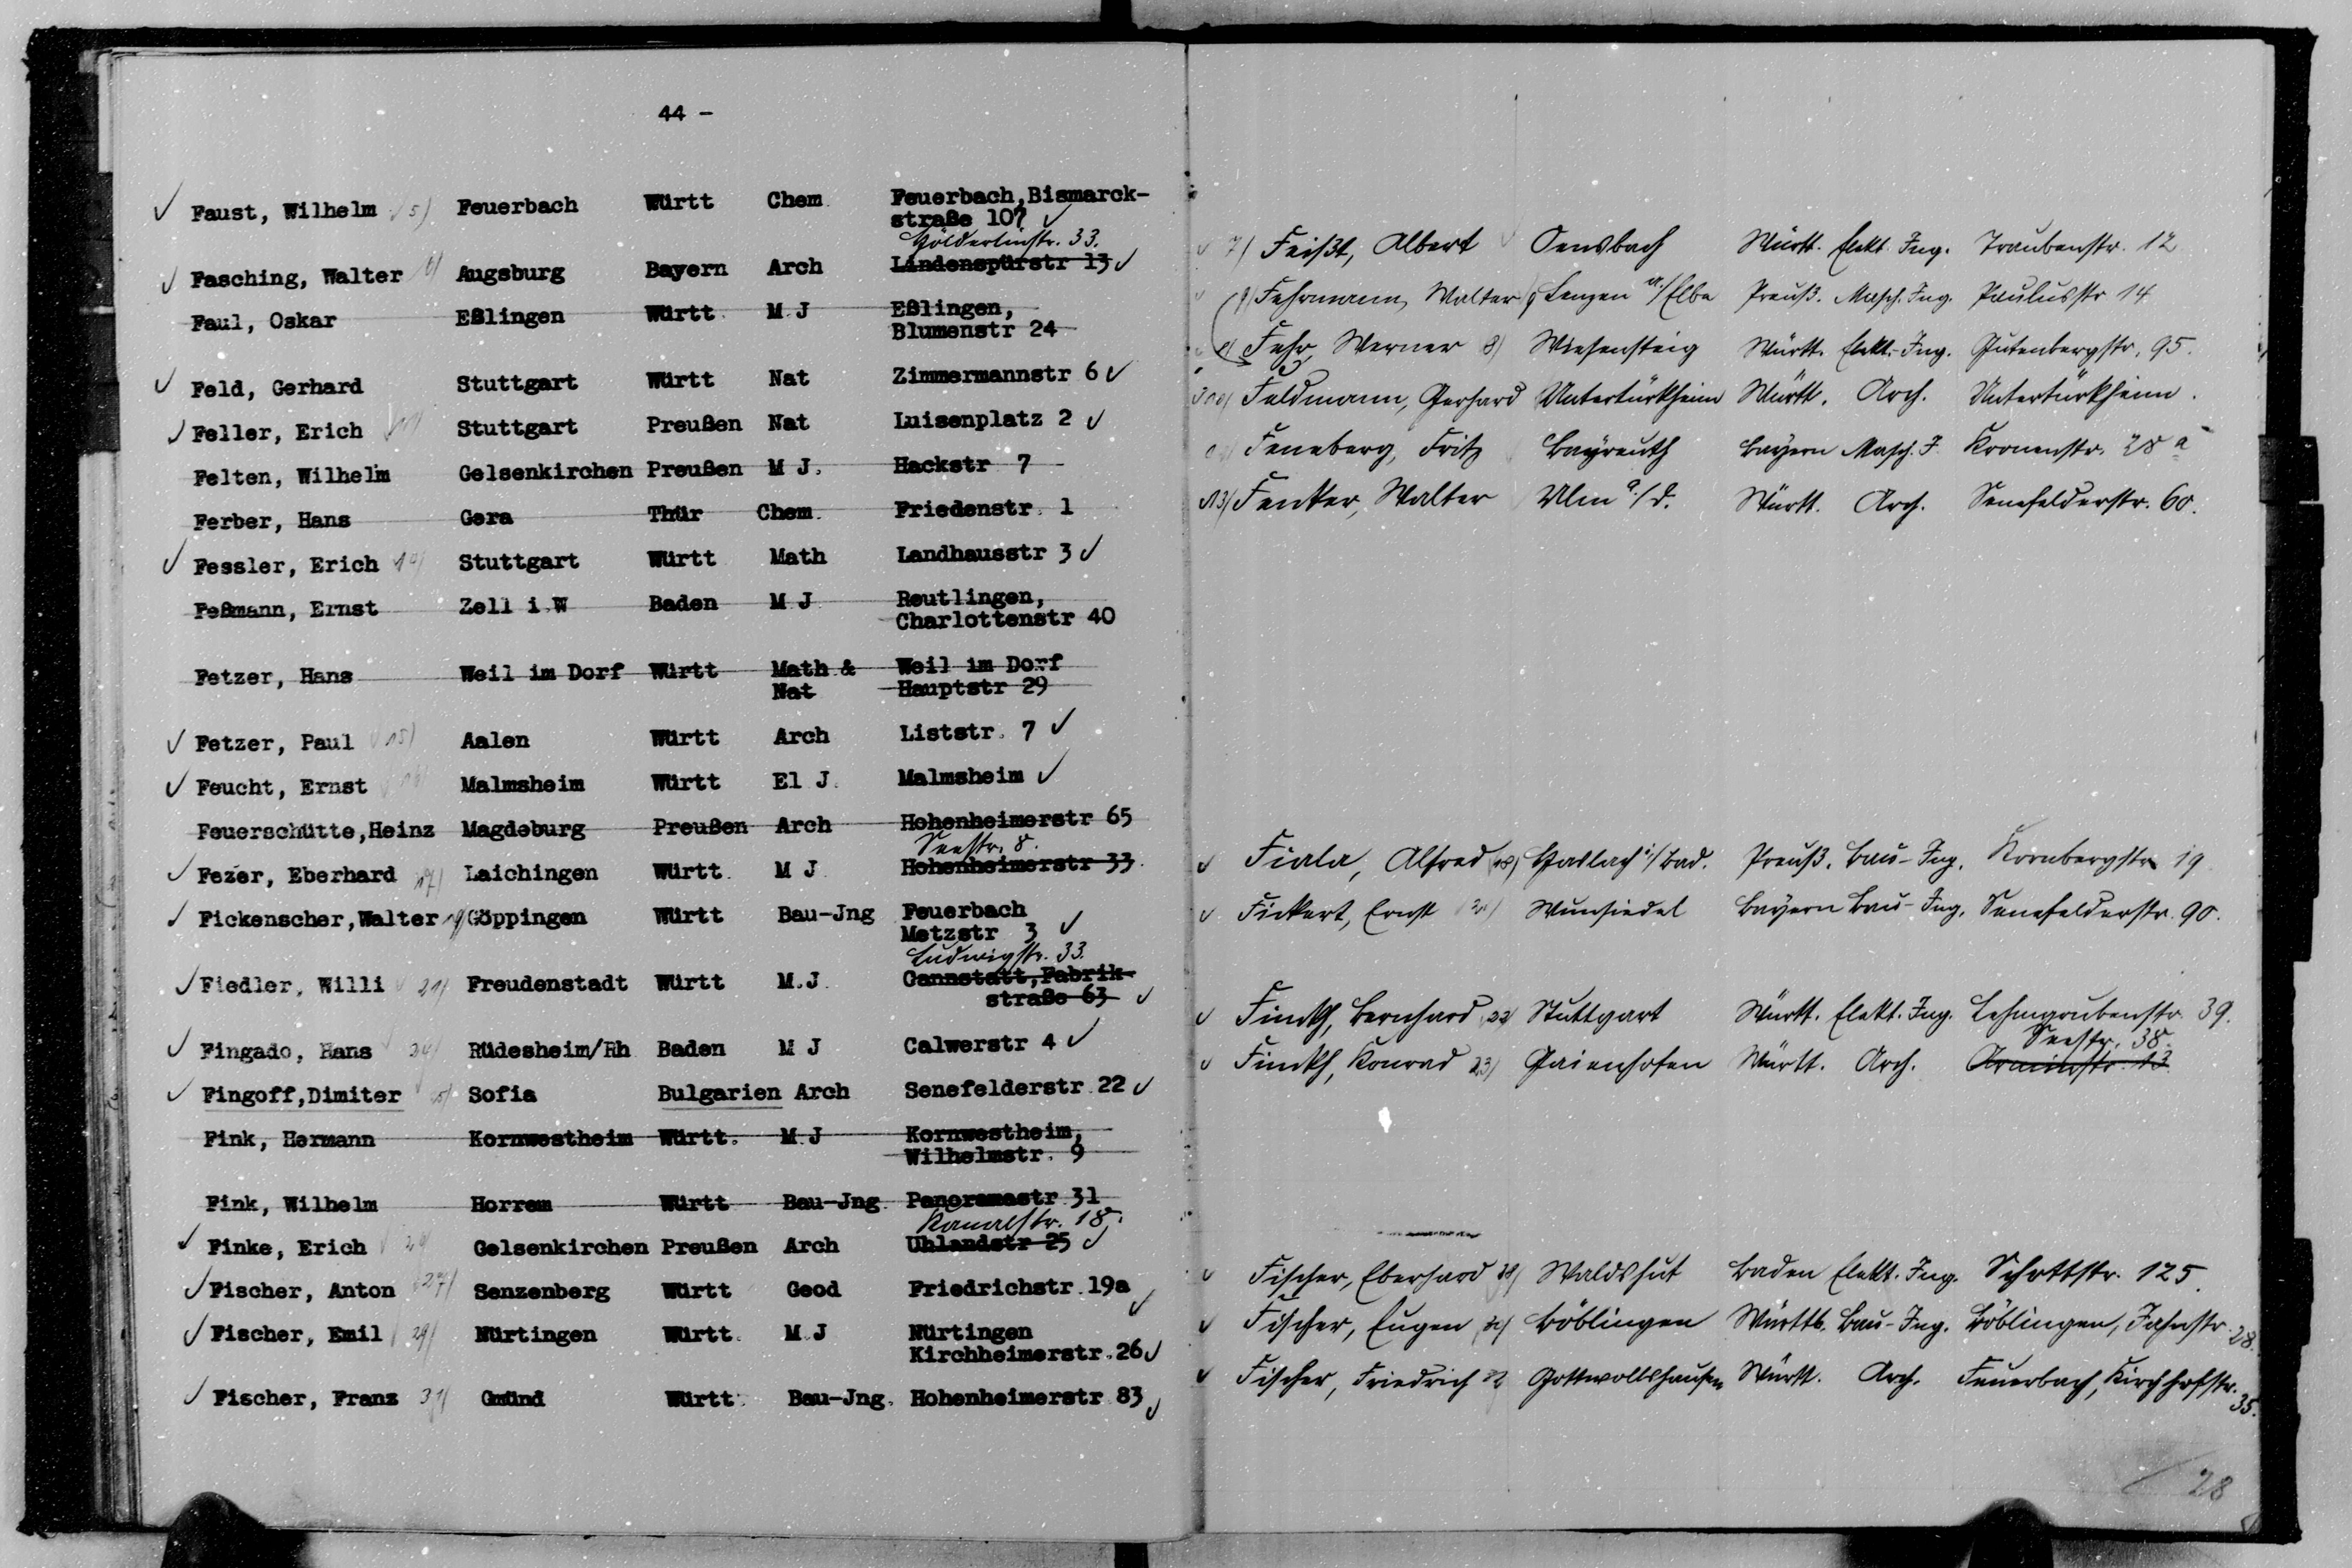 44 -
✓ Faust, Wilhelm ✓ 5) Feuerbach Württ Chem. Feuerbach, Bismarck-
straße 107 ✓
Hölderlinstr. 33.
✓ Fasching, Walter 6) Augsburg Bayern Arch Lindenspürstr 13 ✓
Faul, Oskar Eßlingen Württ. M.J Eßlingen,
Blumenstr 24
✓ Feld, Gerhard Stuttgart Württ Nat Zimmermannstr 6 ✓
✓ Feller, Erich 11) Stuttgart Preußen Nat Luisenplatz 2 ✓
Felten, Wilhelm Gelsenkirchen Preußen M J. Hackstr 7
Ferber, Hans Gera Thür Chem. Friedenstr. 1
✓ Fessler, Erich 14) Stuttgart Württ Math Landhausstr 3 ✓
Feßmann, Ernst Zell i.W Baden M J Reutlingen,
Charlottenstr 40
Fetzer, Hans Weil im Dorf Württ Math & Weil im Dorf
Nat Hauptstr 29
✓ Fetzer, Paul ✓ 15) Aalen Württ Arch Liststr. 7 ✓
✓ Feucht, Ernst Malmsheim Württ El J. Malmsheim ✓
Feuerschütte, Heinz Magdeburg Preußen Arch Hohenheimerstr 65
Seestr. 8.
✓ Fezer, Eberhard 17) Laichingen Württ. M J Hohenheimerstr 33.
✓ Fickenscher, Walter 19) Göppingen Württ Bau-Jng Feuerbach
Metzstr 3 ✓
Ludwigstr. 33.
✓ Fiedler, Willi ✓ 21) Freudenstadt Württ M.J. Cannstatt, Fabrik-
straße 63 ✓
✓ Fingado, Hans ✓ 24) Rüdesheim/Rh Baden M J Calwerstr 4 ✓
✓ Fingoff, Dimiter ✓ 25) Sofia Bulgarien Arch Senefelderstr. 22 ✓
Fink, Hermann Kornwestheim Württ. M.J Kornwestheim,
Wilhelmstr. 9
Fink, Wilhelm Horrem Württ Bau-Jng. Panoramastr. 31
Kanalstr. 18.
✓ Finke, Erich Gelsenkirchen Preußen Arch Uhlandstr 25 ✓
✓ Fischer, Anton 27) Senzenberg Württ Geod Friedrichstr. 19a ✓
✓ Fischer, Emil 29) Nürtingen Württ. M.J Nürtingen
Kirchheimerstr. 26 ✓
✓ Fischer, Franz 31) Gmünd Württ. Bau-Jng. Hohenheimerstr 83 ✓
✓ 7) Feißt, Albert ✓ Oensbach Württ. Elekt. Ing. Traubenstr. 12
Fehrmann, Walter Lenzen a./Elbe Preuß. Masch. Ing. Paulusstr 14
Fehr, Werner 8) Wiesensteig Württ. Elekt.-Ing. Gutenbergstr. 95.
Feldmann, Gerhard Untertürkheim Württ. Arch. Untertürkheim.
Feneberg, Fritz Bayreuth Bayern Masch. J. Kronenstr. 28 a
13) Fentter, Walter Ulm a./d. Württ. Arch. Senefelderstr. 60.
✓ Fiala, Alfred 18) i/Bad. Preuß. Bau-Ing. Kornbergstr 19
✓ Fickert, Ernst Wunsiedel Bayern Bau-Ing. Senefelderstr. 90.
✓ Finckh, Bernhard 22) Stuttgart Württ. Elekt. Ing. Lehmgrubenstr. 39.
Seestr. 38.
✓ Finckh, Konrad 23) Gaienhofen Württ. Arch. Arminstr. 13
✓ Fischer, Eberhard 28) Waldshut Baden Elekt. Ing. Schottstr. 125.
✓ Fischer, Eugen Böblingen Württb. Bau-Ing. Böblingen, Jahnstr. 28.
✓ Fischer, Friedrich Gottwollshausen Württ. Arch. Feuerbach, Kirchhofstr.
35.
28